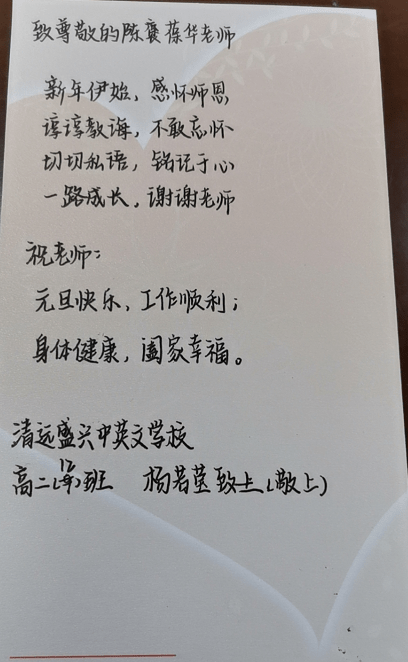 致尊敬的陈赛葆华老师
新年伊始，感怀师恩
谆谆教诲，不敢忘怀
切切私语，铭记于心
一路成长，谢谢老师
祝老师：
元旦快乐，工作顺利；
身体健康，阖家幸福。
清远盛兴中英文学校
高二(12)班 杨若莹致上(敬上)